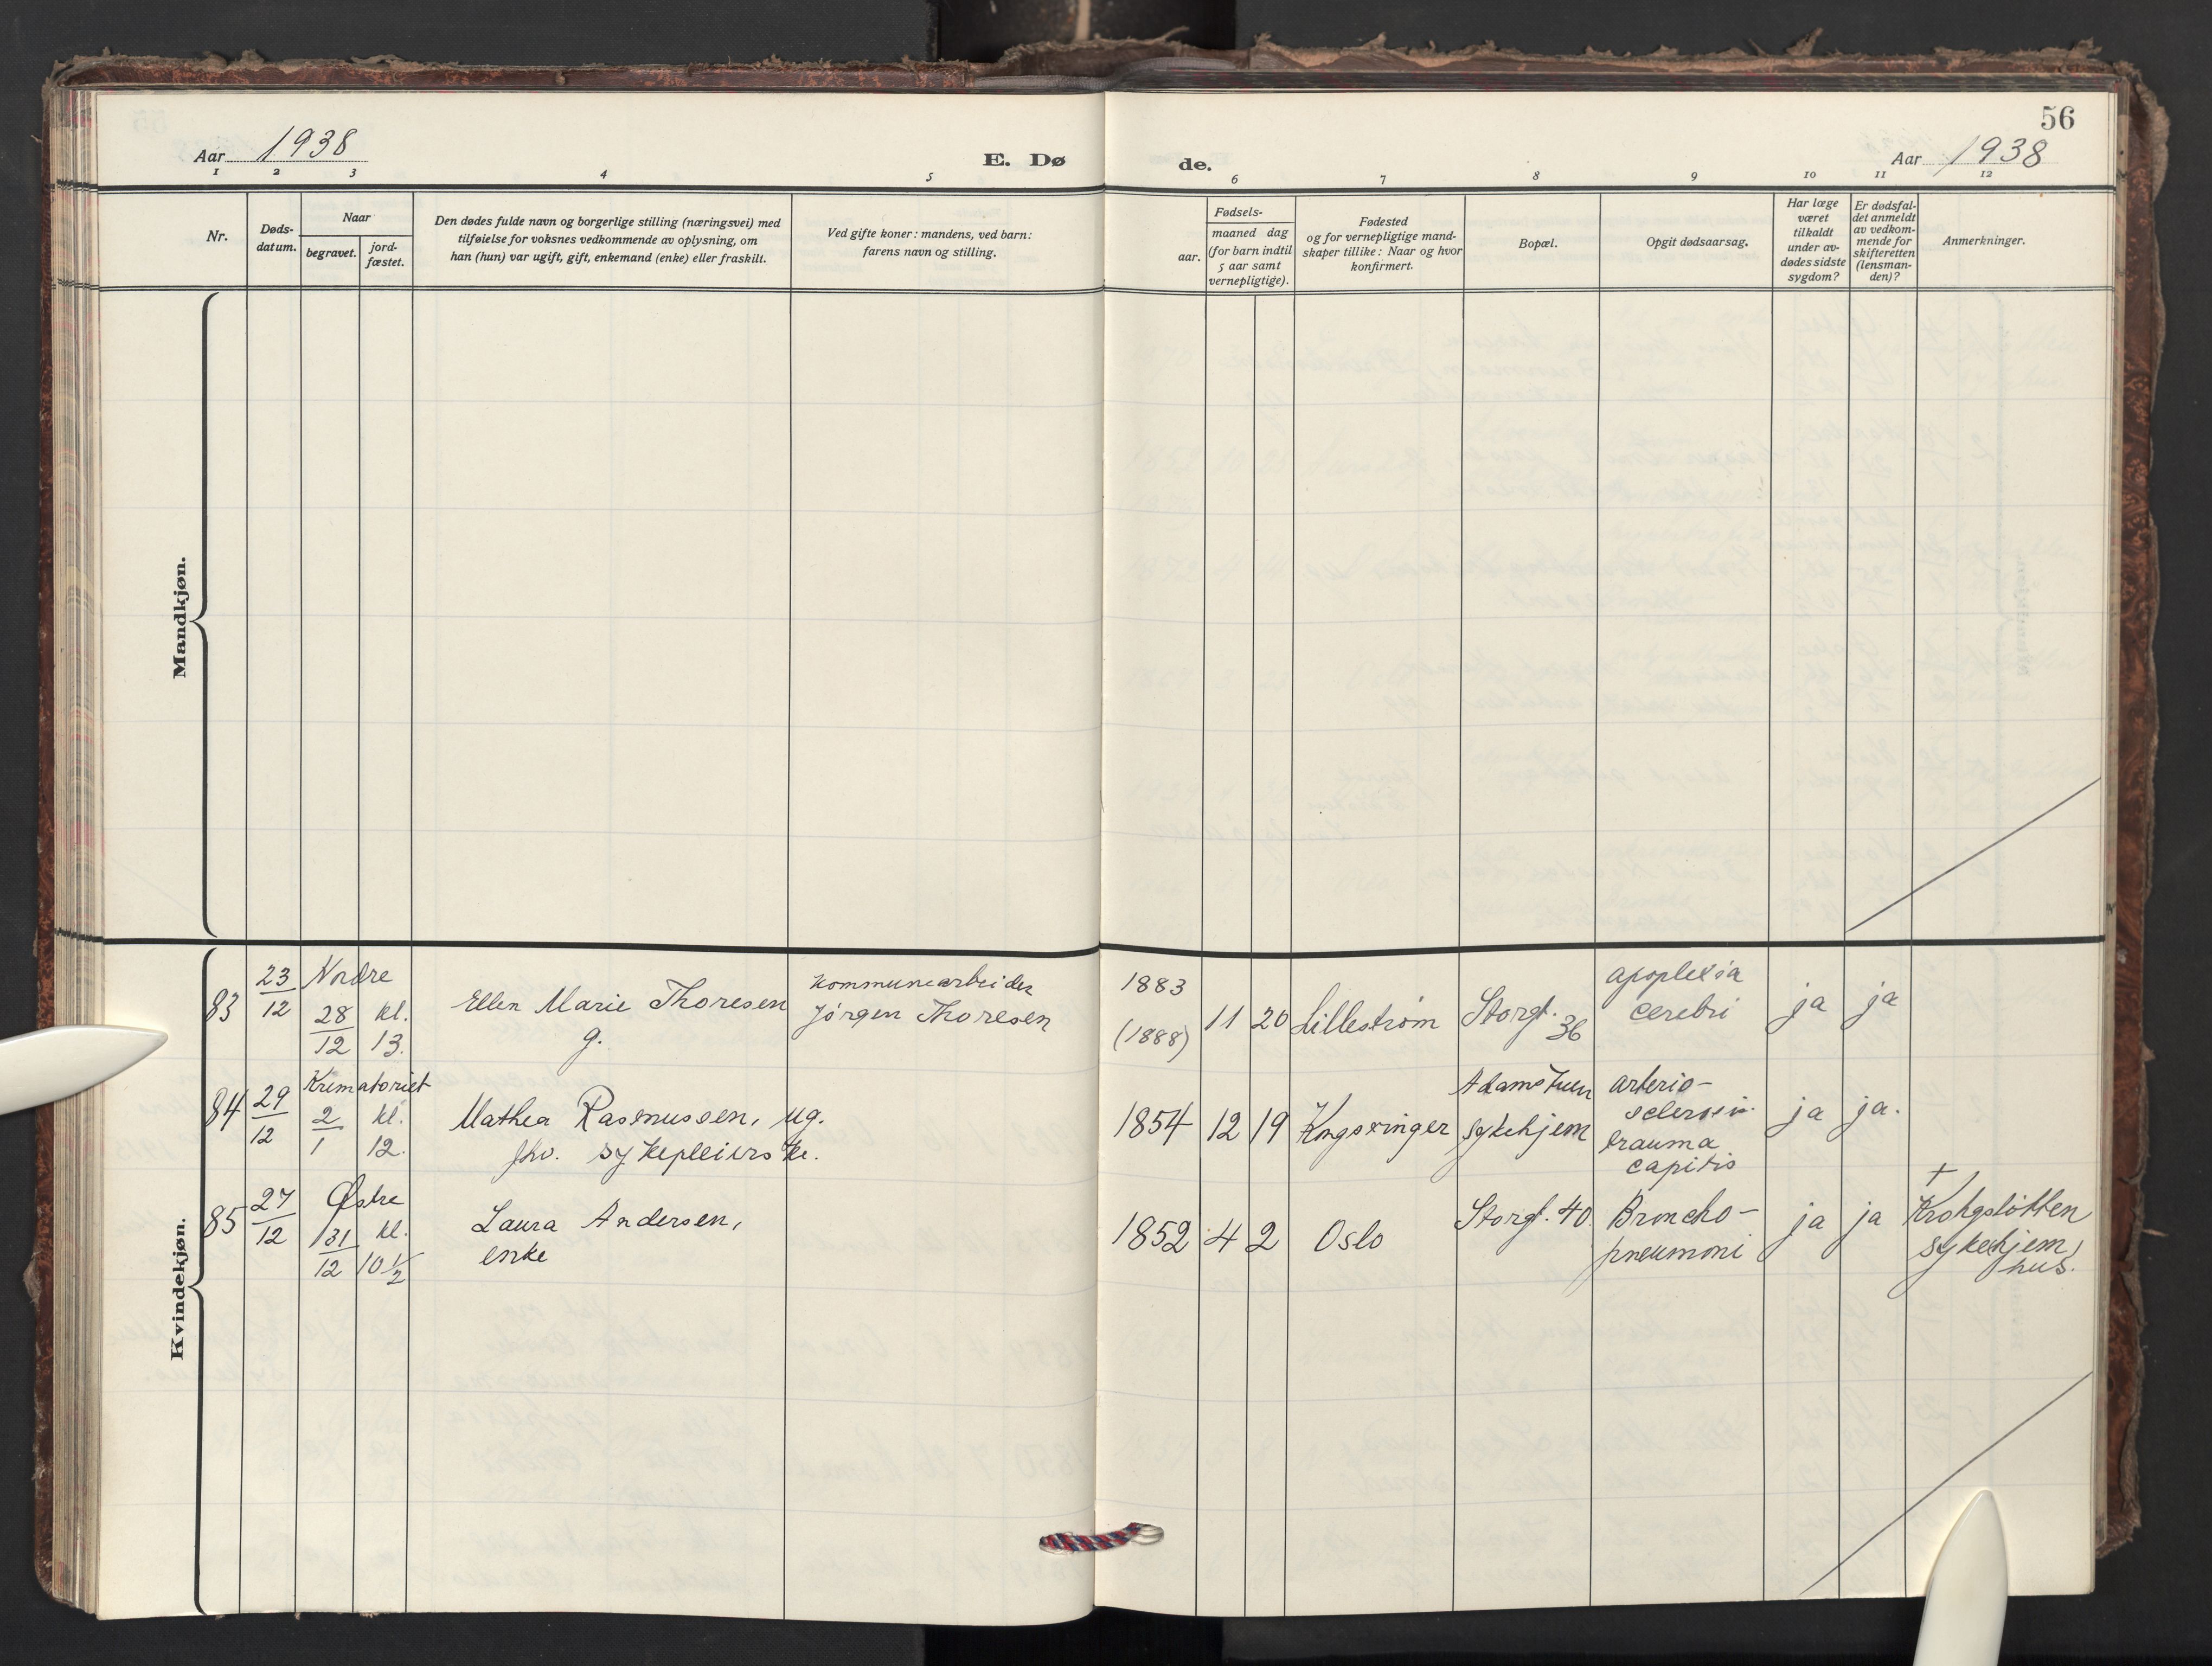 56
Aar 1938
E. Dø
de.
Aar 1938
1 2 3 4 5 6 7 8 9 10 11 12
Nr.
Døds-
datum.
Naar
begravet.
jord-
fæstet.
Den dødes fulde navn og borgerlige stilling (næringsvei) med
tilføielse for voksnes vedkommende av oplysning, om
han (hun) var ugift, gift, enkemand (enke) eller fraskilt.
Ved gifte koner: mandens, ved barn:
farens navn og stilling.
Fødsels-
aar.
maaned dag
(for barn indtil
5 aar samt
vernepligtige).
Fødested
og for vernepligtige mand-
skaper tillike: Naar og hvor
konfirmert.
Bopæl.
Opgit dødsaarsag.
Har læge
været
tilkaldt
under av-
dødes sidste
sygdom?
Er dødsfal-
det anmeldt
av vedkom-
mende for
skifteretten
(lensman-
den)?
Anmerkninger.
Mandkjøn.
Kvindekjøn.
83
23/12
Nordre
28/12
kl.
13.
Ellen Marie Thoresen
g.
kommunearbeider
Jørgen Thoresen
1883
(1888)
11
20
Lillestrøm
Storgt.
36
apoplexia
cerebri
ja
ja
84
29/12
Krematoriet
2/1
kl.
12.
Mathea Rasmussen, ug.
fhv. sykepleierske.
1854
12
19
Kongsvinger
Adamstuen
sykehjem
arterio-
sclerosis.
trauma
capitis
ja
ja.
85
27/12
Østre
31/12
kl.
10 1/2
Laura Andersen,
enke
1852
4
2
Oslo
Storgt. 40
Broncho-
pneumoni
ja
ja
+
Krohgstøtten
sykehjem
hus.